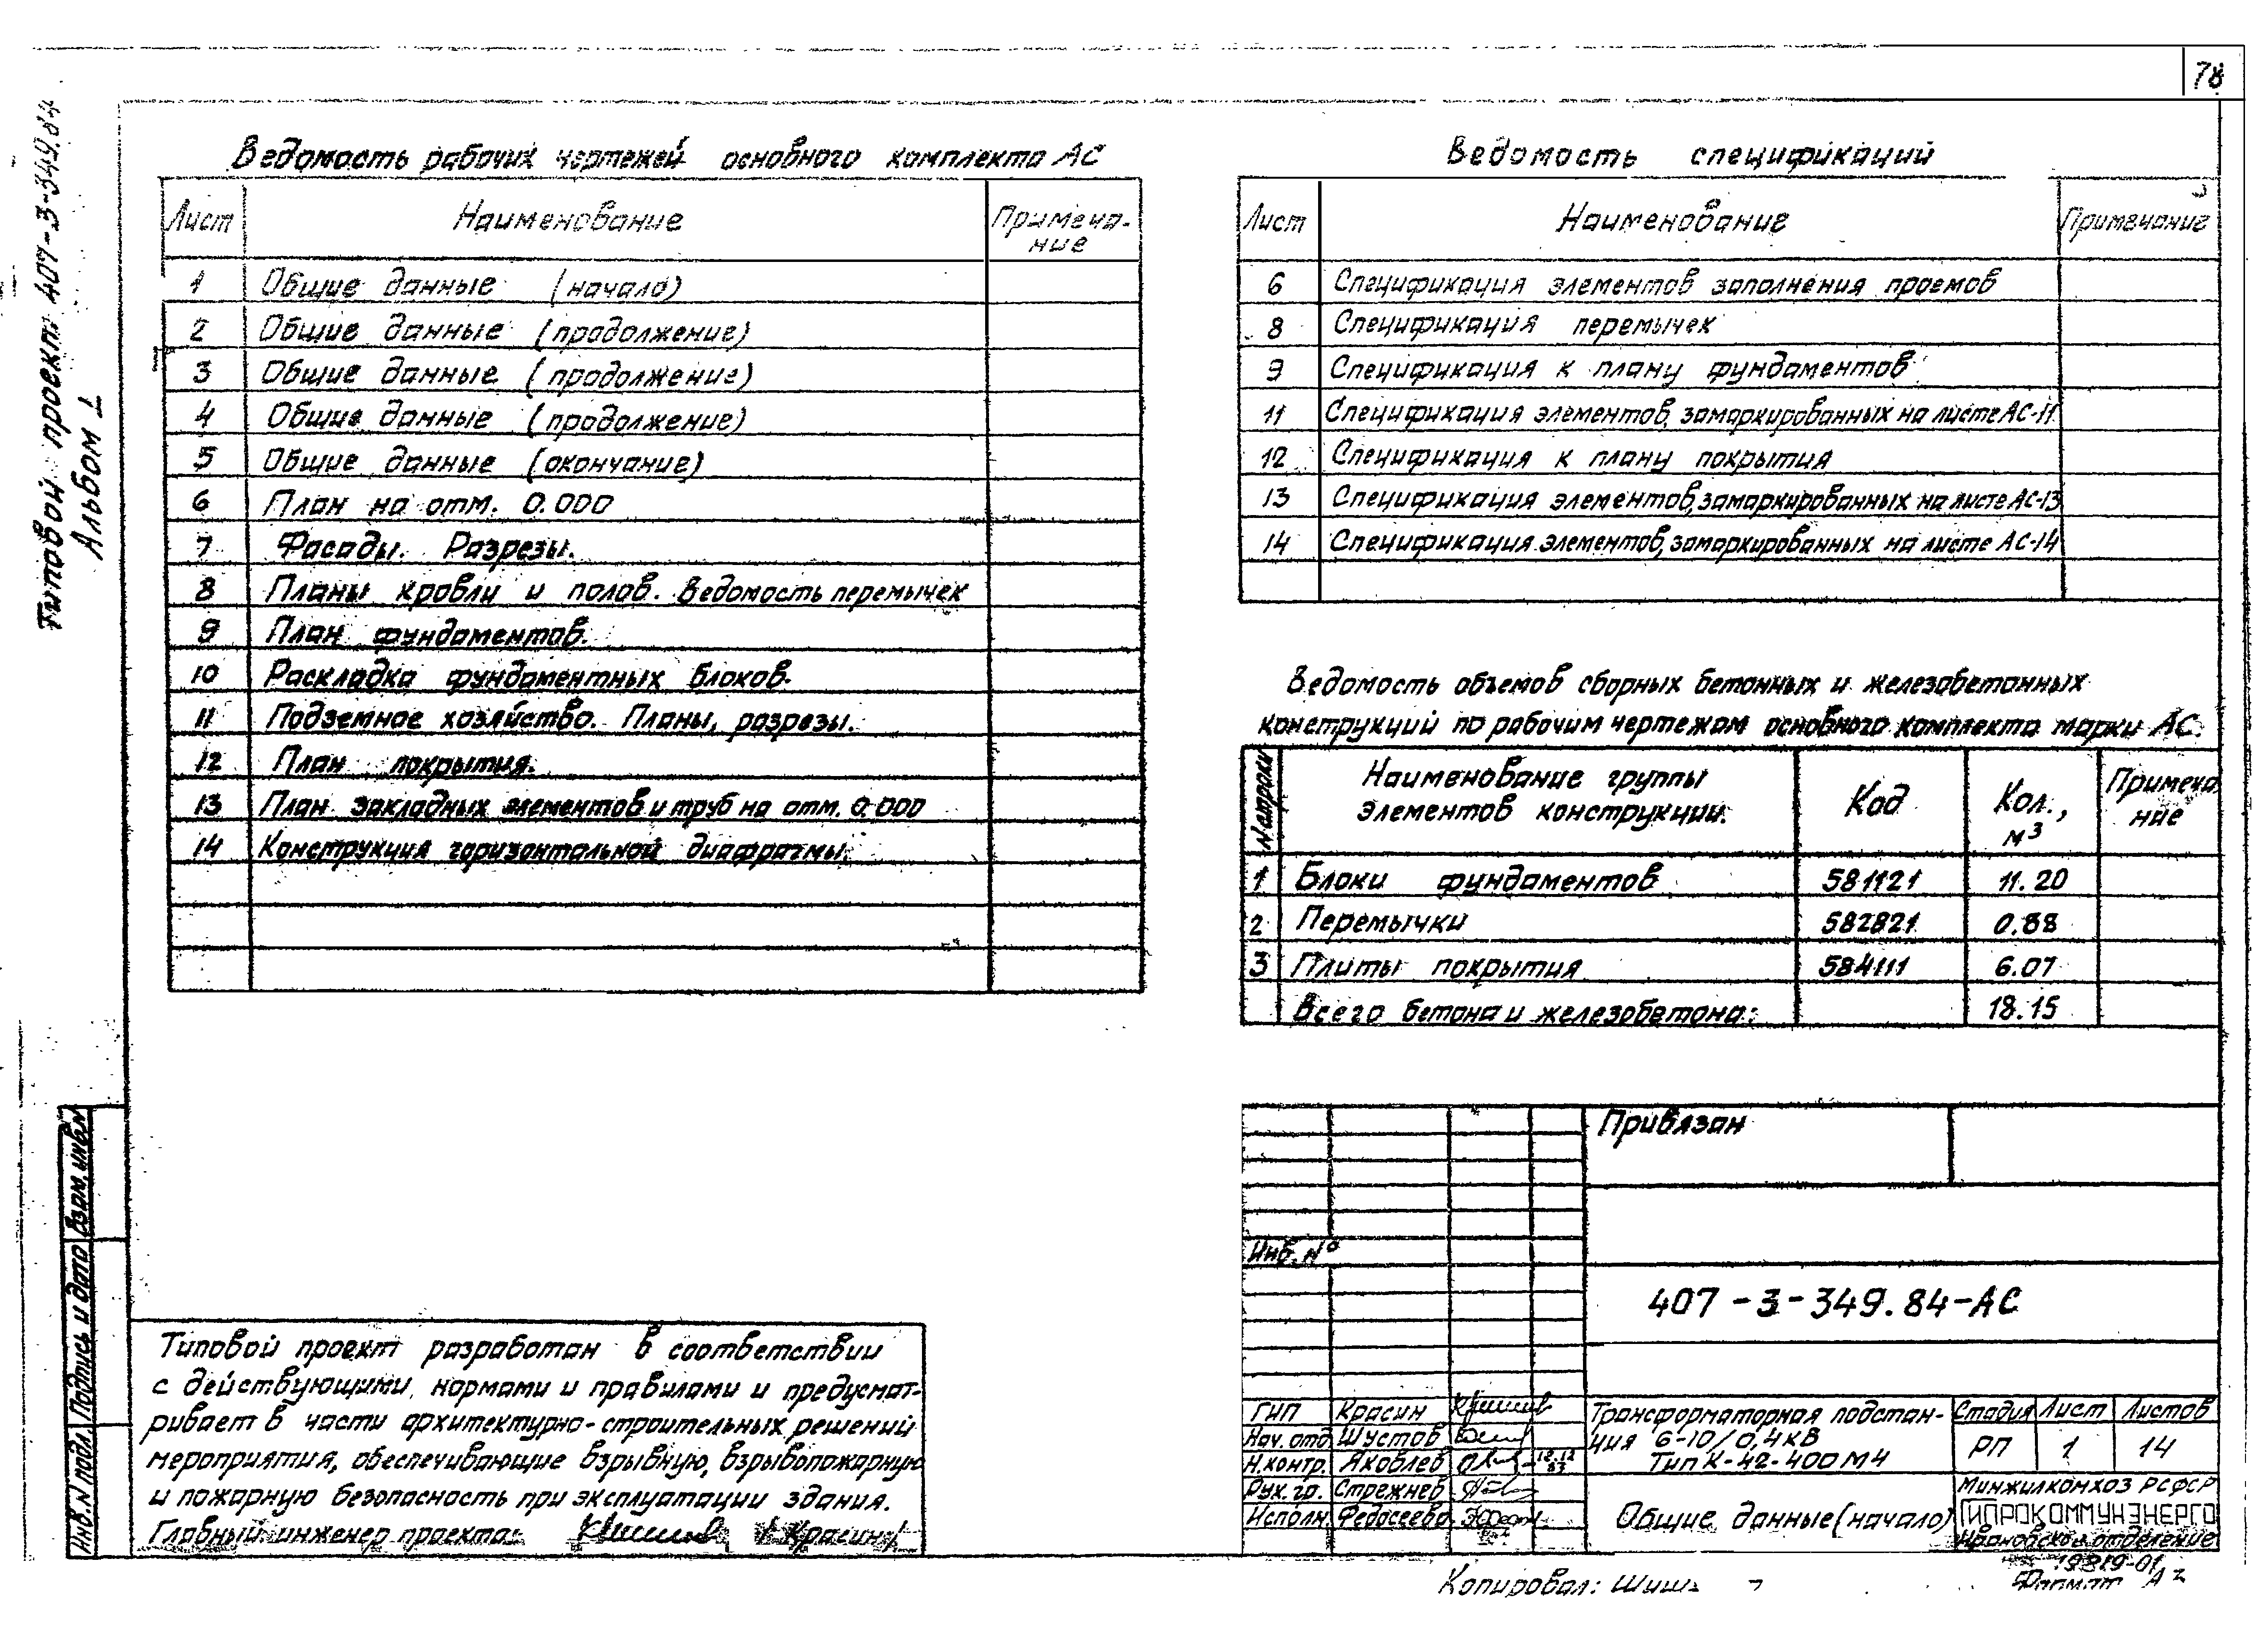 78
Типовой проект 407-3-349.84
Альбом I
Ведомость рабочих чертежей основного комплекта АС
Лист Наименование Примеча-
ние
1 Общие данные (начало)
2 Общие данные (продолжение)
3 Общие данные (продолжение)
4 Общие данные (продолжение)
5 Общие данные (окончание)
6 План на отм. 0.000
7 Фасады. Разрезы.
8 Планы кровли и полов. Ведомость перемычек
9 План фундаментов.
10 Раскладка фундаментных блоков.
11 Подземное хозяйство. Планы, разрезы.
12 План покрытия.
13 План закладных элементов и труб на отм. 0.000
14 Конструкция горизонтальной диафрагмы.
Ведомость спецификаций
Лист Наименование Примечание
6 Спецификация элементов заполнения проемов
8 Спецификация перемычек
9 Спецификация к плану фундаментов
11 Спецификация элементов, замаркированных на листе АС-11
12 Спецификация к плану покрытия
13 Спецификация элементов, замаркированных на листе АС-13
14 Спецификация элементов, замаркированных на листе АС-14
Ведомость объемов сборных бетонных и железобетонных
конструкций по рабочим чертежам основного комплекта марки АС.
Наименование группы
элементов конструкции. Код Кол.,
м³ Примеча
ние
1 Блоки фундаментов 581121 11.20
2 Перемычки 582821 0.88
3 Плиты покрытия 584111 6.07
Всего бетона и железобетона: 18.15
Привязан
Инв. №
407-3-349.84-АС
ГИП Красин
Нач. отд Шустов
Н.контр. Яковлев 12.12
83
Рук. гр. Стрежнев
Исполн. Федосеева
Трансформаторная подстан-
ция 6-10/0,4кВ
Тип К-42-400М4
Стадия Лист Листов
РП 1 14
Общие данные (начало)
Минжилкомхоз РСФСР
ГИПРОКОММУНЭНЕРГО
Ивановское отделение
19819-01
Копировал:
Формат А
Типовой проект разработан в соответствии
с действующими нормами и правилами и предусмат-
ривает в части архитектурно-строительных решений
мероприятия, обеспечивающие взрывную, взрывопожарную
и пожарную безопасность при эксплуатации здания.
Главный инженер проекта: /Красин/
Взам. инв.№
Подпись и дата
Инв. № подл.